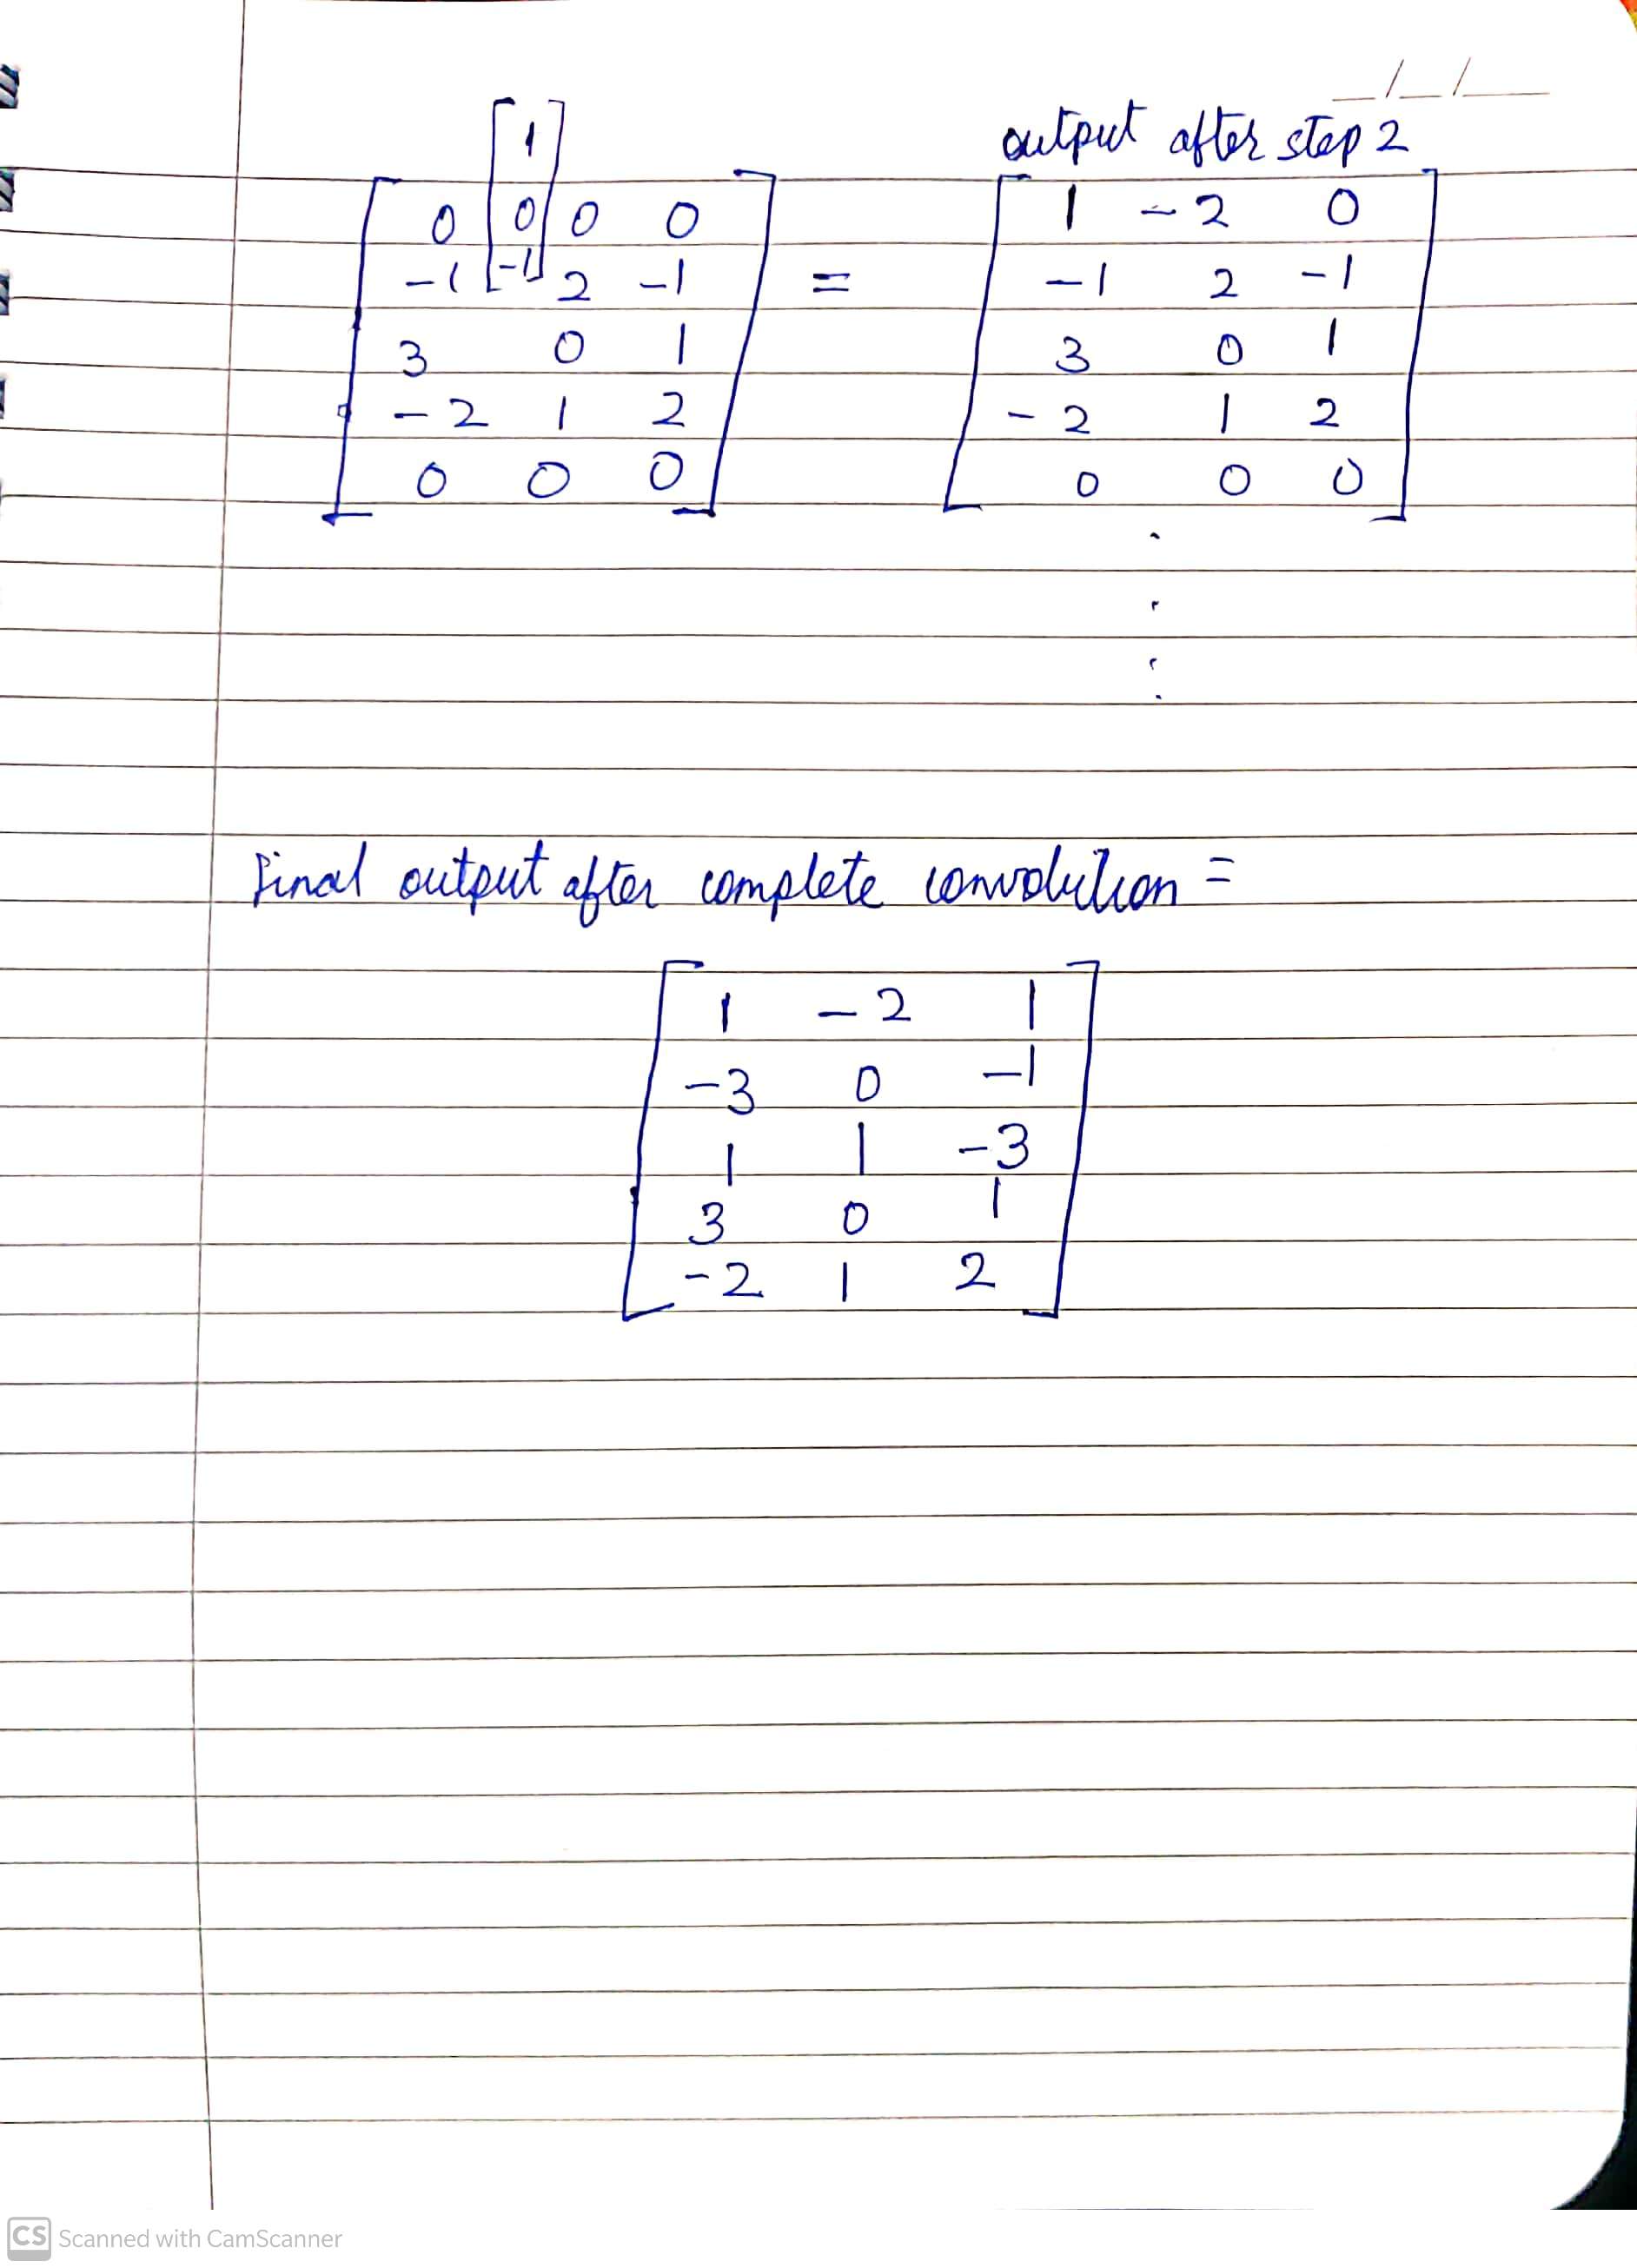 __/__/__
output after step 2
[1]
0 0 0 0 1 -2 0
-1 -1 2 -1 = -1 2 -1
3 0 1 3 0 1
-2 1 2 -2 1 2
0 0 0 0 0 0
Final output after complete convolution =
1 -2 1
-3 0 -1
1 1 -3
3 0 1
-2 1 2
CS Scanned with CamScanner